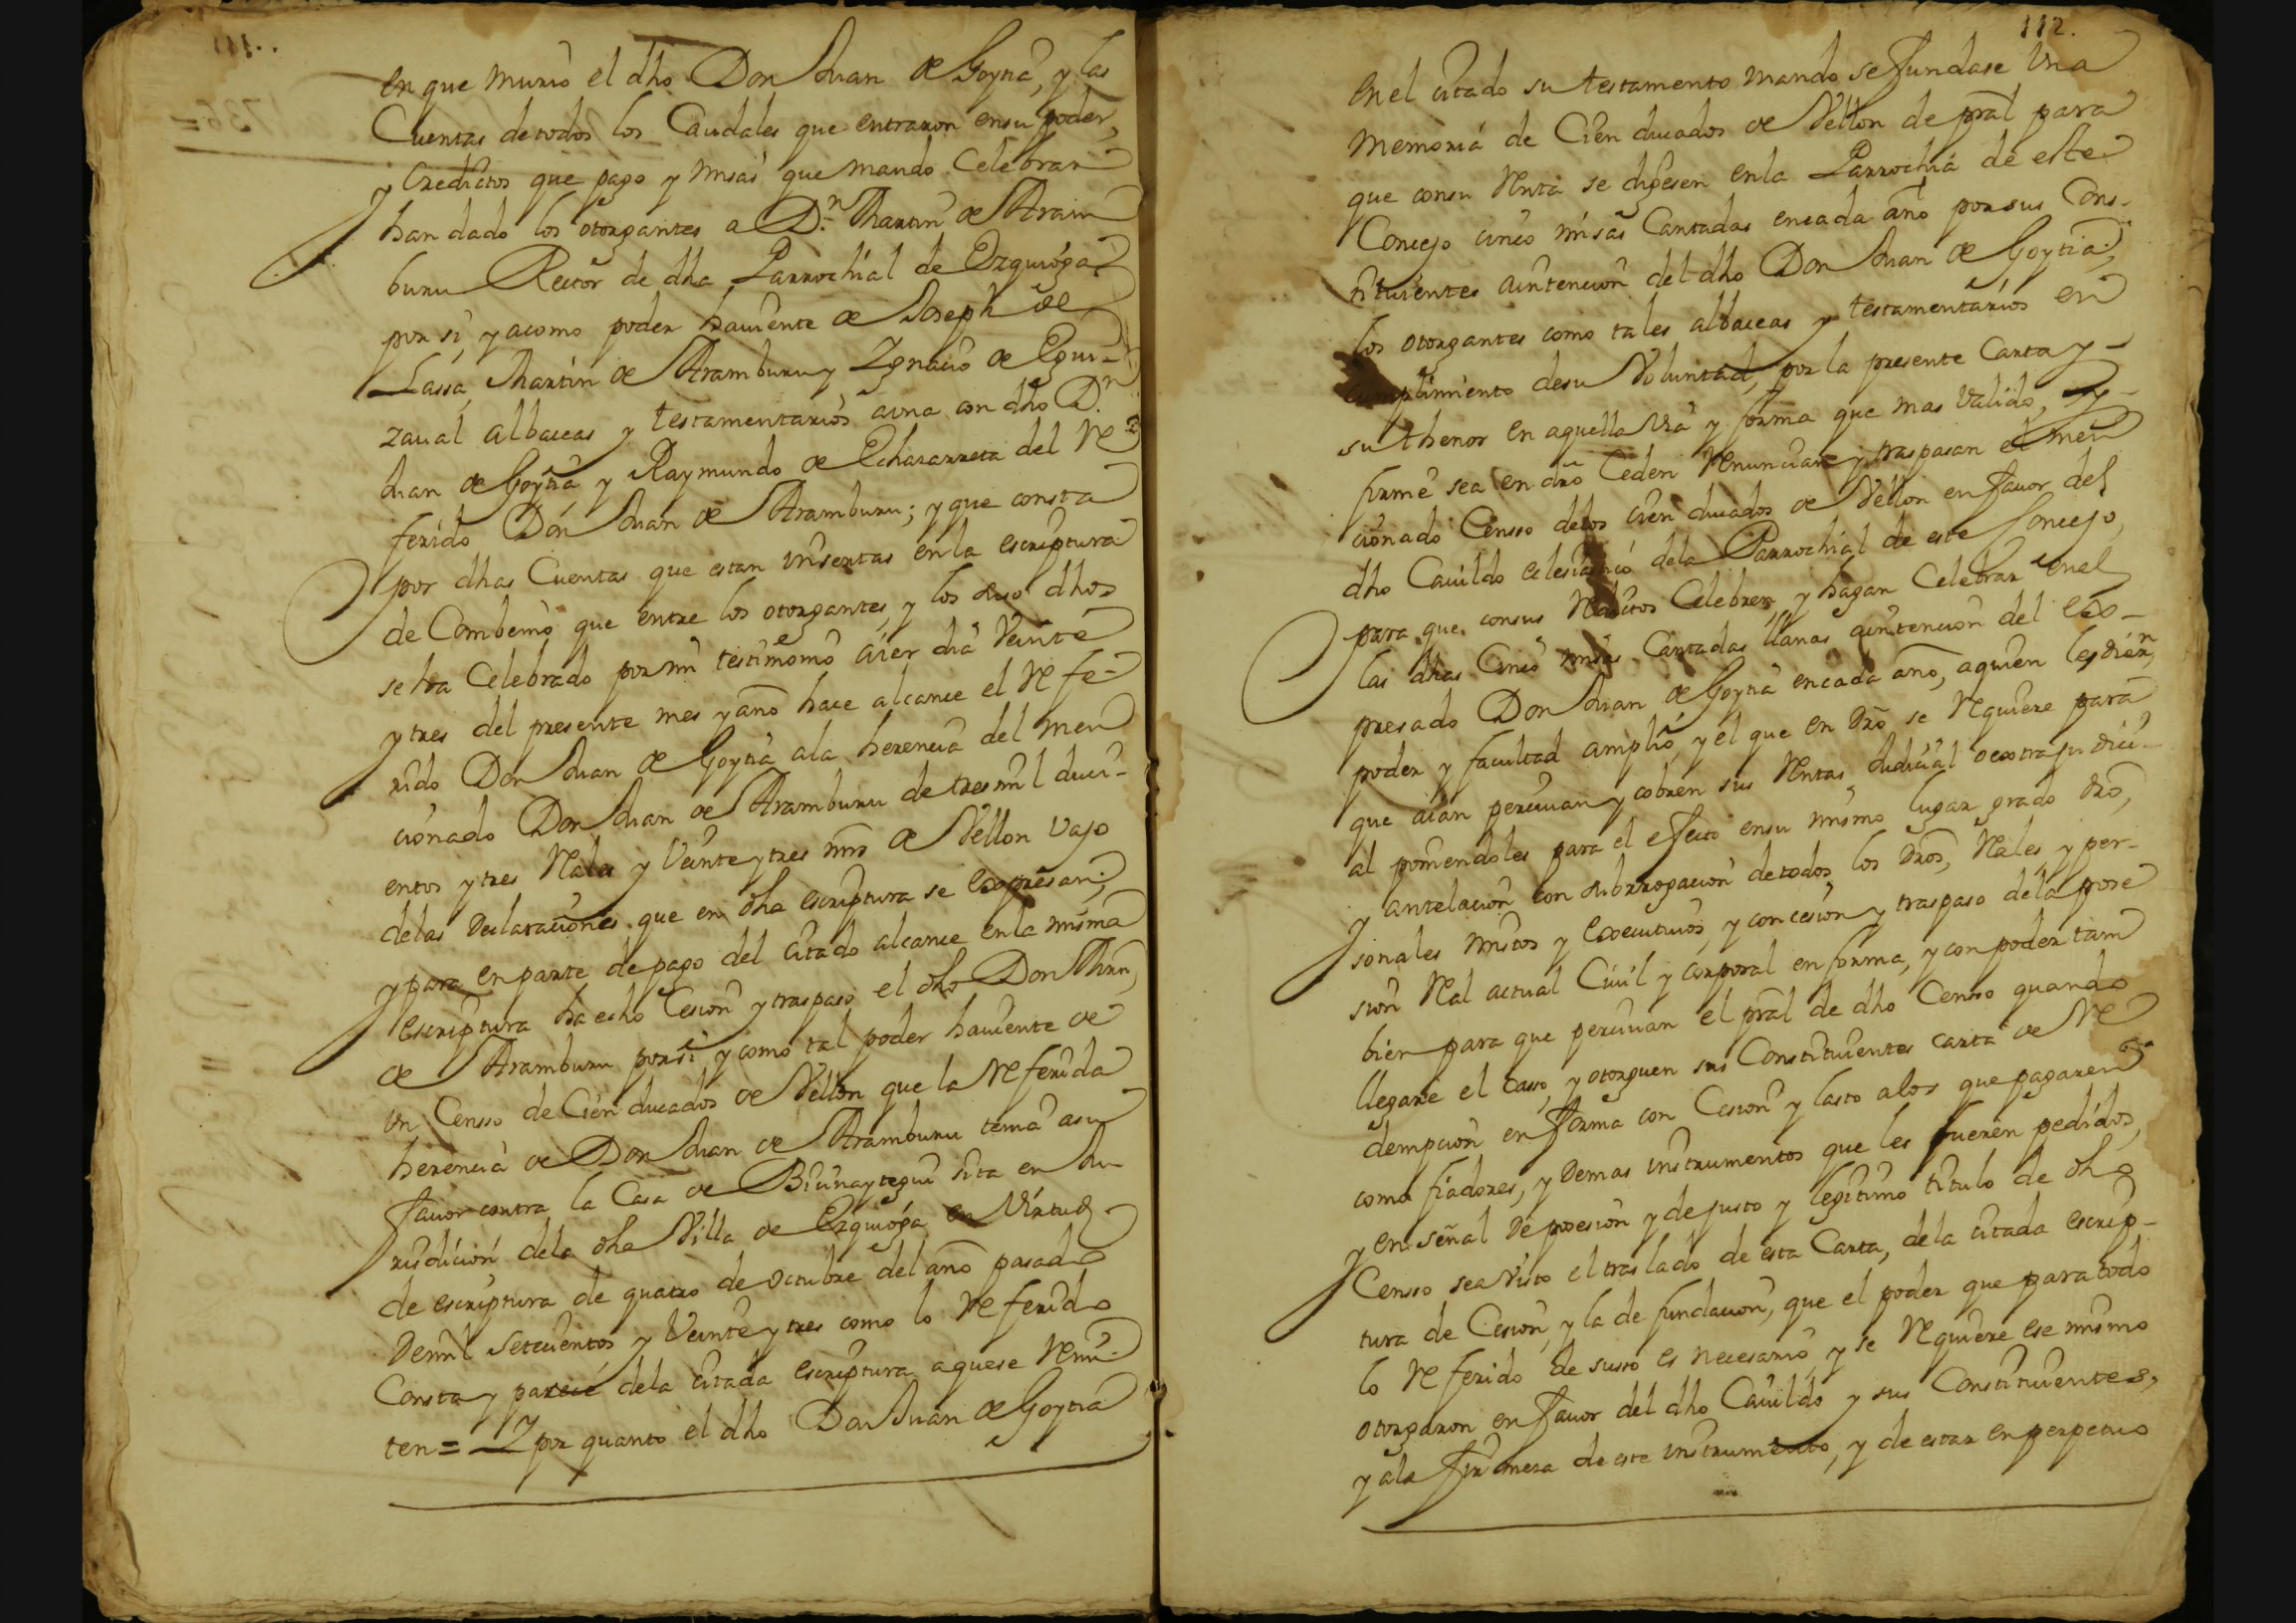 en que murio el dho Don Juan de Goytia, y las
Cuentas de todos los Caudales que entraron en su poder,
y Creditos que pago y misas que mando Celebrar
han dado los otorgantes a D.n Martin de Aram
buru Rector de dha Parrochial de Ezquioga
por si, y a como poder haviente de Joseph de
Lassa, Martin de Aramburu y Ignacio de Egui-
zaval albaceas y testamentarios a una con dho D.n
Juan de Goytia y Raymundo de Echazarreta del Re
ferido Don Juan de Aramburu; y que consta
por dhas Cuentas que estan insertas en la escriptura
de Combenio que entre los otorgantes, y los suso dhos
se ha Celebrado por mi testimonio aier dia Veinte
y tres del presente mes y año hace alcance el Refe-
rido Don Juan de Goytia a la herencia del men
cionado Don Juan de Aramburu de tres mil duci-
entos y tres Rales y Veinte y tres mrs de Vellon vajo
de las Declaraciones que en dha escriptura se expresan;
y para en parte de pago del citado alcance en la misma
escriptura ha echo Cesion y traspaso el dho Don Mrn,
de Aramburu por si y como tal poder haviente de
un Censso de Cien ducados de Vellon que la Referida
herencia de Don Juan de Aramburu tenia a su
favor contra la Casa de sita en Ju-
risdicion de la dha Villa de Ezquioga en Virtud
de escriptura de quatro de Octubre del año pasado
De mil setecientos y Veinte y tres como lo Referido
Consta y parece de la citada escriptura a que se Remi-
ten = Y por quanto el dho Don Juan de Goytia
112.
en el citado su testamento mando se fundase Una
Memoria de Cien ducados de Vellon de pral para
que con su Renta se dijesen en la Parrochia de este
Concejo cinco misas Cantadas en cada año por sus Cons-
tituientes a intencion del dho Don Juan de Goytia;
los otorgantes como tales albaceas y testamentarios en
cumplimiento de su Voluntad, por la presente Carta y
su thenor en aquella via y forma que mas Valido, y
firme sea en dro Ceden Renuncian y traspasan el men
cionado Censso de los cien ducados de Vellon en favor del
dho Cavildo eclesiastico de la Parrochial de este Concejo,
para que con sus Reditos Celebren, y hagan Celebrar en el
las dhas Cinco misas Cantadas llanas a intencion del ex-
presado Don Juan de Goytia en cada año, a quien les dieron
poder y facultad amplio, y el que en Dro se Requiere para
que aian percivan y cobren sus Rentas Judicial o extrajudici-
al poniendoles para el efecto en su mismo lugar grado dro,
y antelacion con subrrogacion de todos los Dros, Rales, y per-
sonales mistos y executivos, y con cesion y traspaso de la pose
sion Ral actual Civil y corporal en forma, y con poder tam
bien para que percivan el pral de dho Censso quando
llegare el casso, y otorguen sus Constituientes carta de Re
dempcion en forma con Cesion y lasto a los que pagaren
como fiadores, y Demas instrumentos que les fueren pedidos,
y en señal de posesion y de justo y legitimo titulo de dho
Censso sea visto el traslado de esta Carta, de la citada escrip-
tura de Cesion, y la de fundacion, que el poder que para todo
lo Referido de susso es necesario, y se Requiere ese mismo
otorgaron en favor del dho Cavildo y sus Constituientes,
y a la firmeza de este instrumento, y de estar en perpetuo